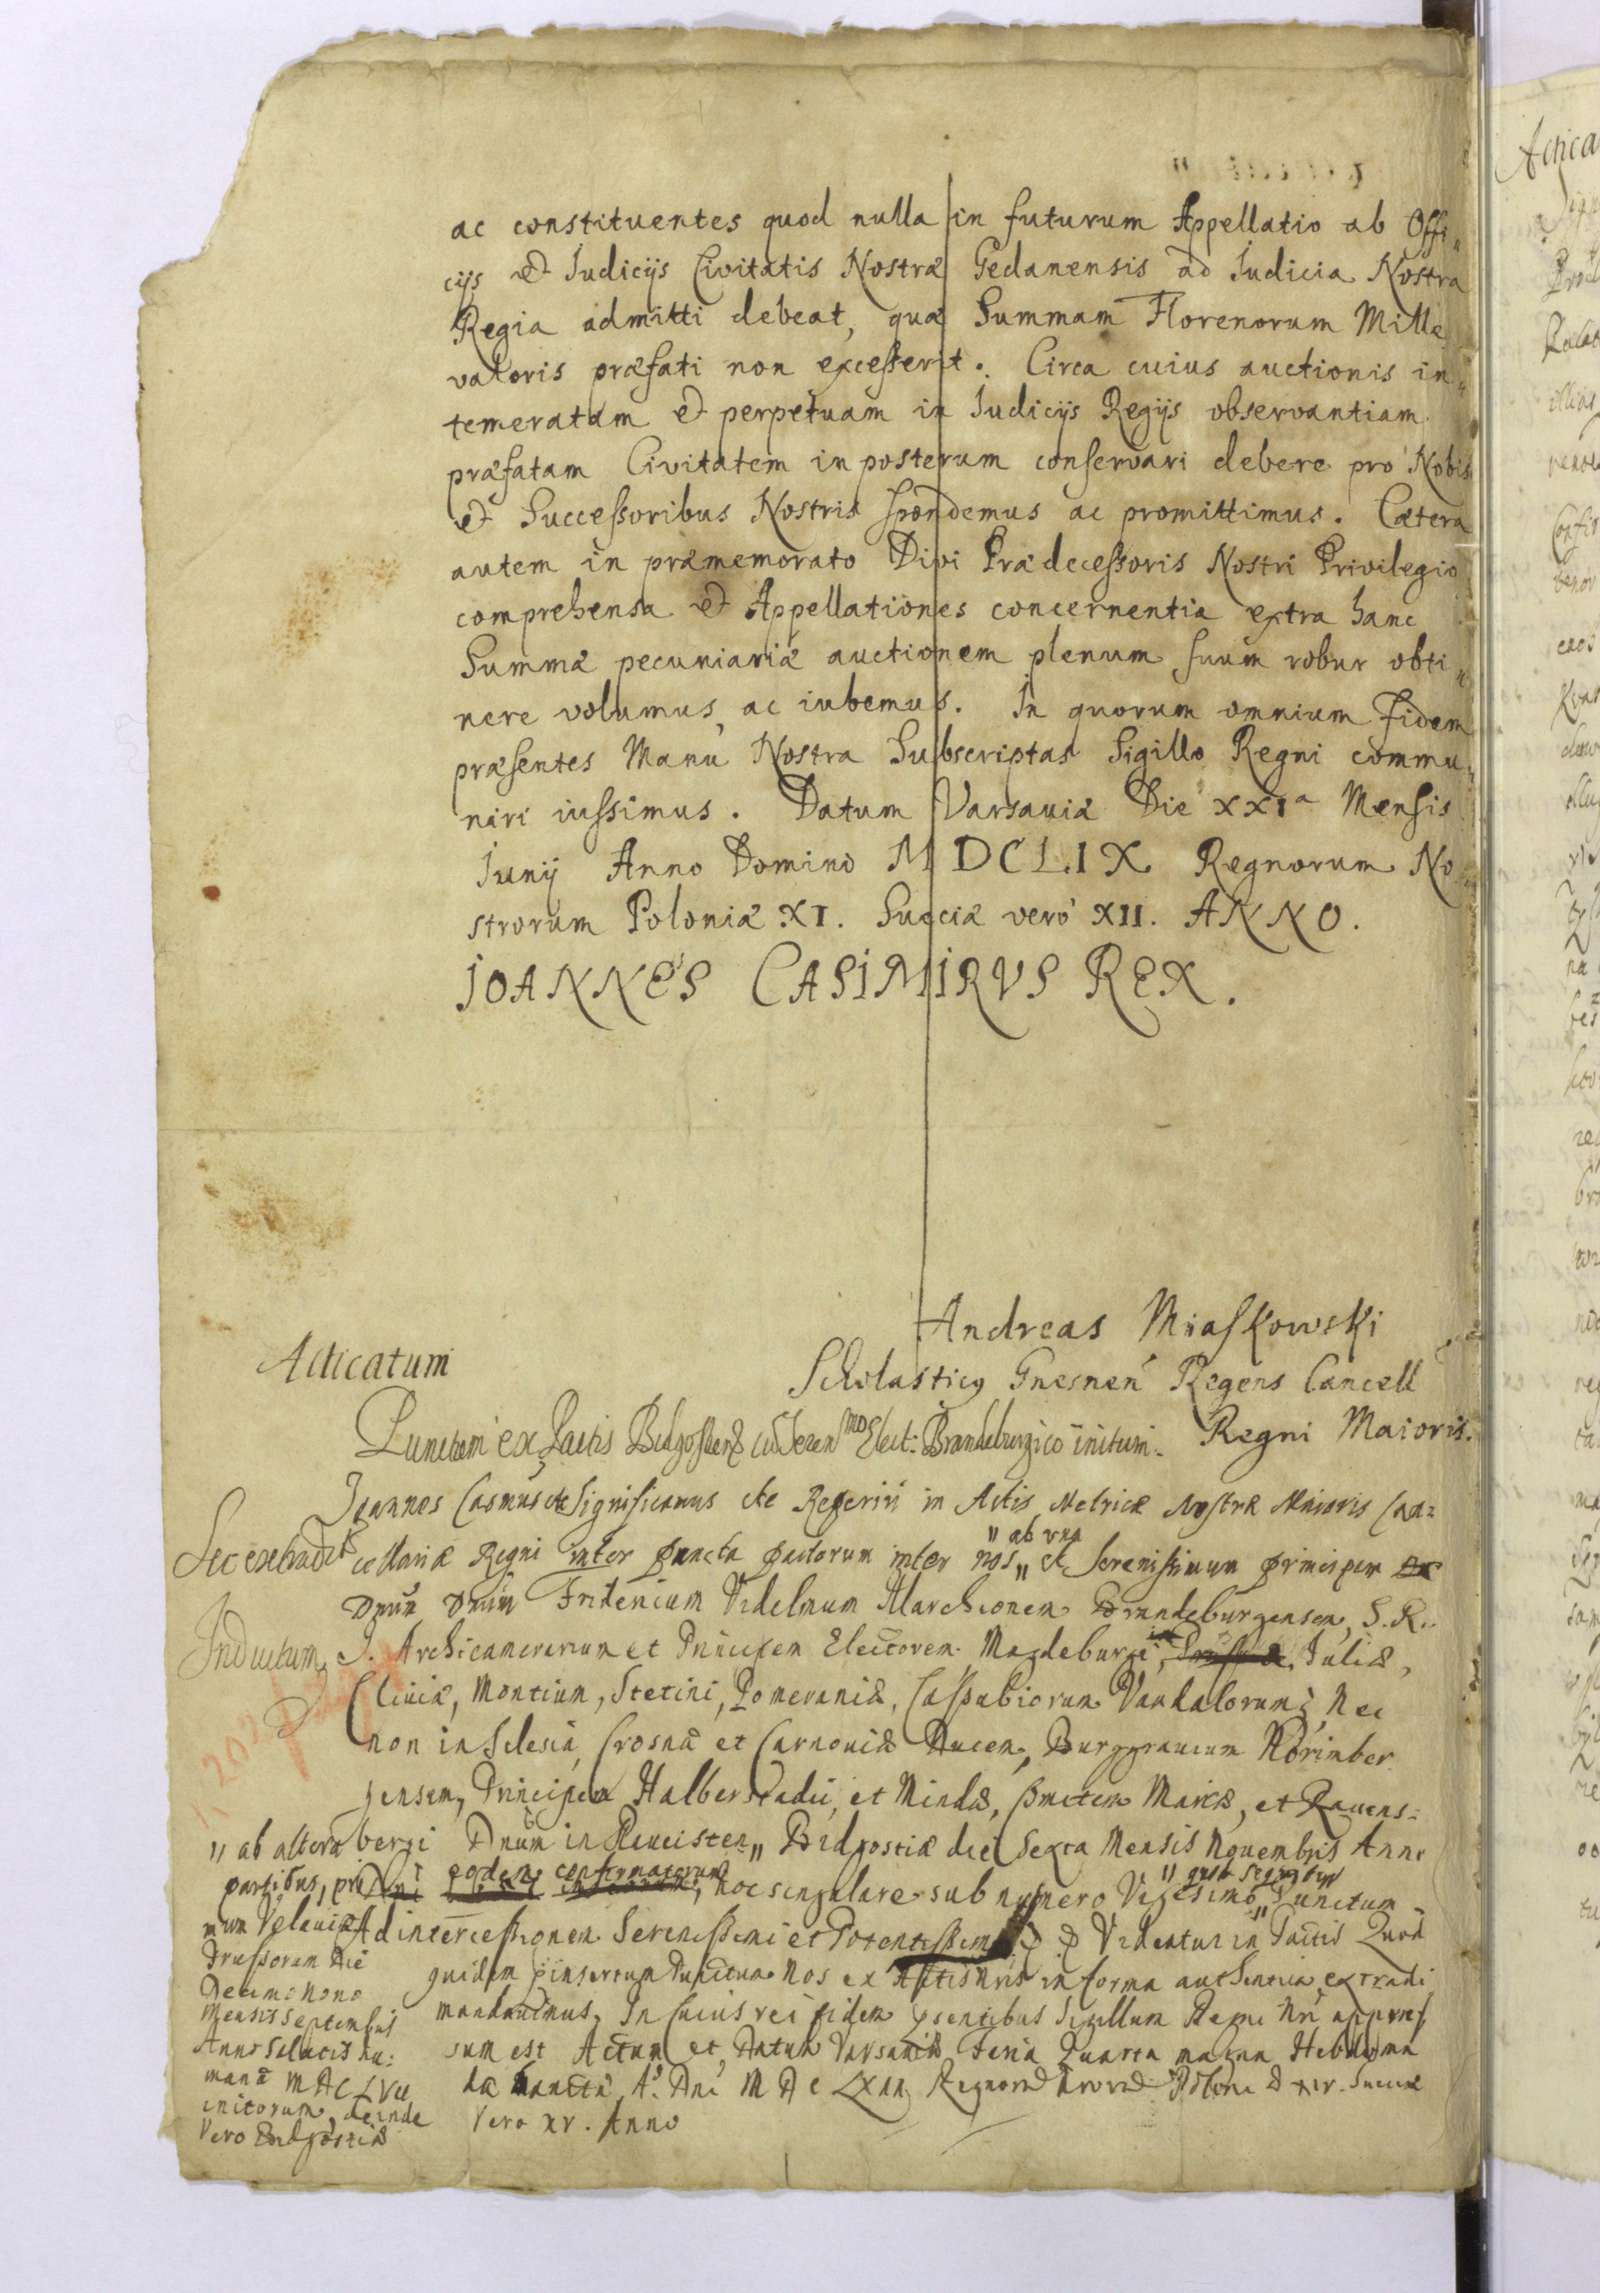 ac constituentes quod nulla in futurum Appellatio ab Offi„
cijs et Iudicijs Civitatis Nostræ Gedanensis ad Iudicia Nostra
Regia admitti debeat, quæ Summam Florenorum Mille
valoris præfati non excesserit. Circa cuius auctionis in„
temeratam et perpetuam in Iudicijs Regijs observantiam
præfatam Civitatem in posterum conservari debere pro Nobis
et Successoribus Nostris spondemus ac promittimus. Cætera
autem in præmemorato Divi Prædecessoris Nostri Privilegio
comprehensa et Appellationes concernentia extra hanc
Summæ pecuniariæ auctionem plenum suum robur obti„
nere volumus, ac iubemus. In quorum omnium fidem
præsentes Manu Nostra Subscriptas Sigillo Regni commu„
niri iussimus. Datum Varsaviæ Die XXIa Mensis
Iunij Anno Domino MDCLIX Regnorum No„
strorum Poloniæ XI. Sueciæ verò XII. ANNO.
IOANNES CASIMIRVS REX.
Andreas Miaskowski
Scholasticus Gnesnen Regens Cancell
Regni Maioris.
Acticatum
Punctum ex Pactis Bidgostiens cum Seren mo Elect: Brandeburgico initum.
Ioannes Casimirus etc Significamus etc Reperiri in Actis Metricæ Nostræ Maioris Can=
Sec extradit
cellariæ Regni inter puncta pactorum inter nos „ et Serenissimum principem
„ ab una
Dnum Dnum Fridericum Videlmum Marchionem Brandeburgensem, S. R.
Inductum
I. Archicamerarium et Principem Electorem Magdeburgi, Iuliæ,
Cliviæ, Montium, Stetini, Pomeraniæ, Cassubiorum Vandalorum; Nec
non in Silesia, Crosnæ et Carnoviæ Ducem, Burggravium Norimber
gensem, Principem Halberstadii, et Mindæ, Comitem Marcæ, et Ravens=
bergi Dnum in Ravensten „ Bidgostiæ die Sexta Mensis Novembris Anno
eodem confirmatorum, hoc singulare sub numero Vigesimo „ Punctum
Ad intercessionem Serenissimi et Potentissimi Videatur in Pactis Quod
quidem insertum Punctum Nos ex Actis Nris in forma authentica extradi
mandavimus, In cuius rei fidem psentibus Sigillum Regni Nri appres
sum est Actum et Datum Varsaviæ Feria Quarta magna Hebdoma
da Sancta, Ao Dni Regnorum Poloniæ XIV. Sueciæ
Vero XV. Anno
„ ab altera
partibus, pri
mum Velaviæ
Prussorum Die
Decimo Nono
Mensis Septembris
Anno Salutis hu:
manæ MDCLVII
initorum, deinde
Vero Bidgostiæ